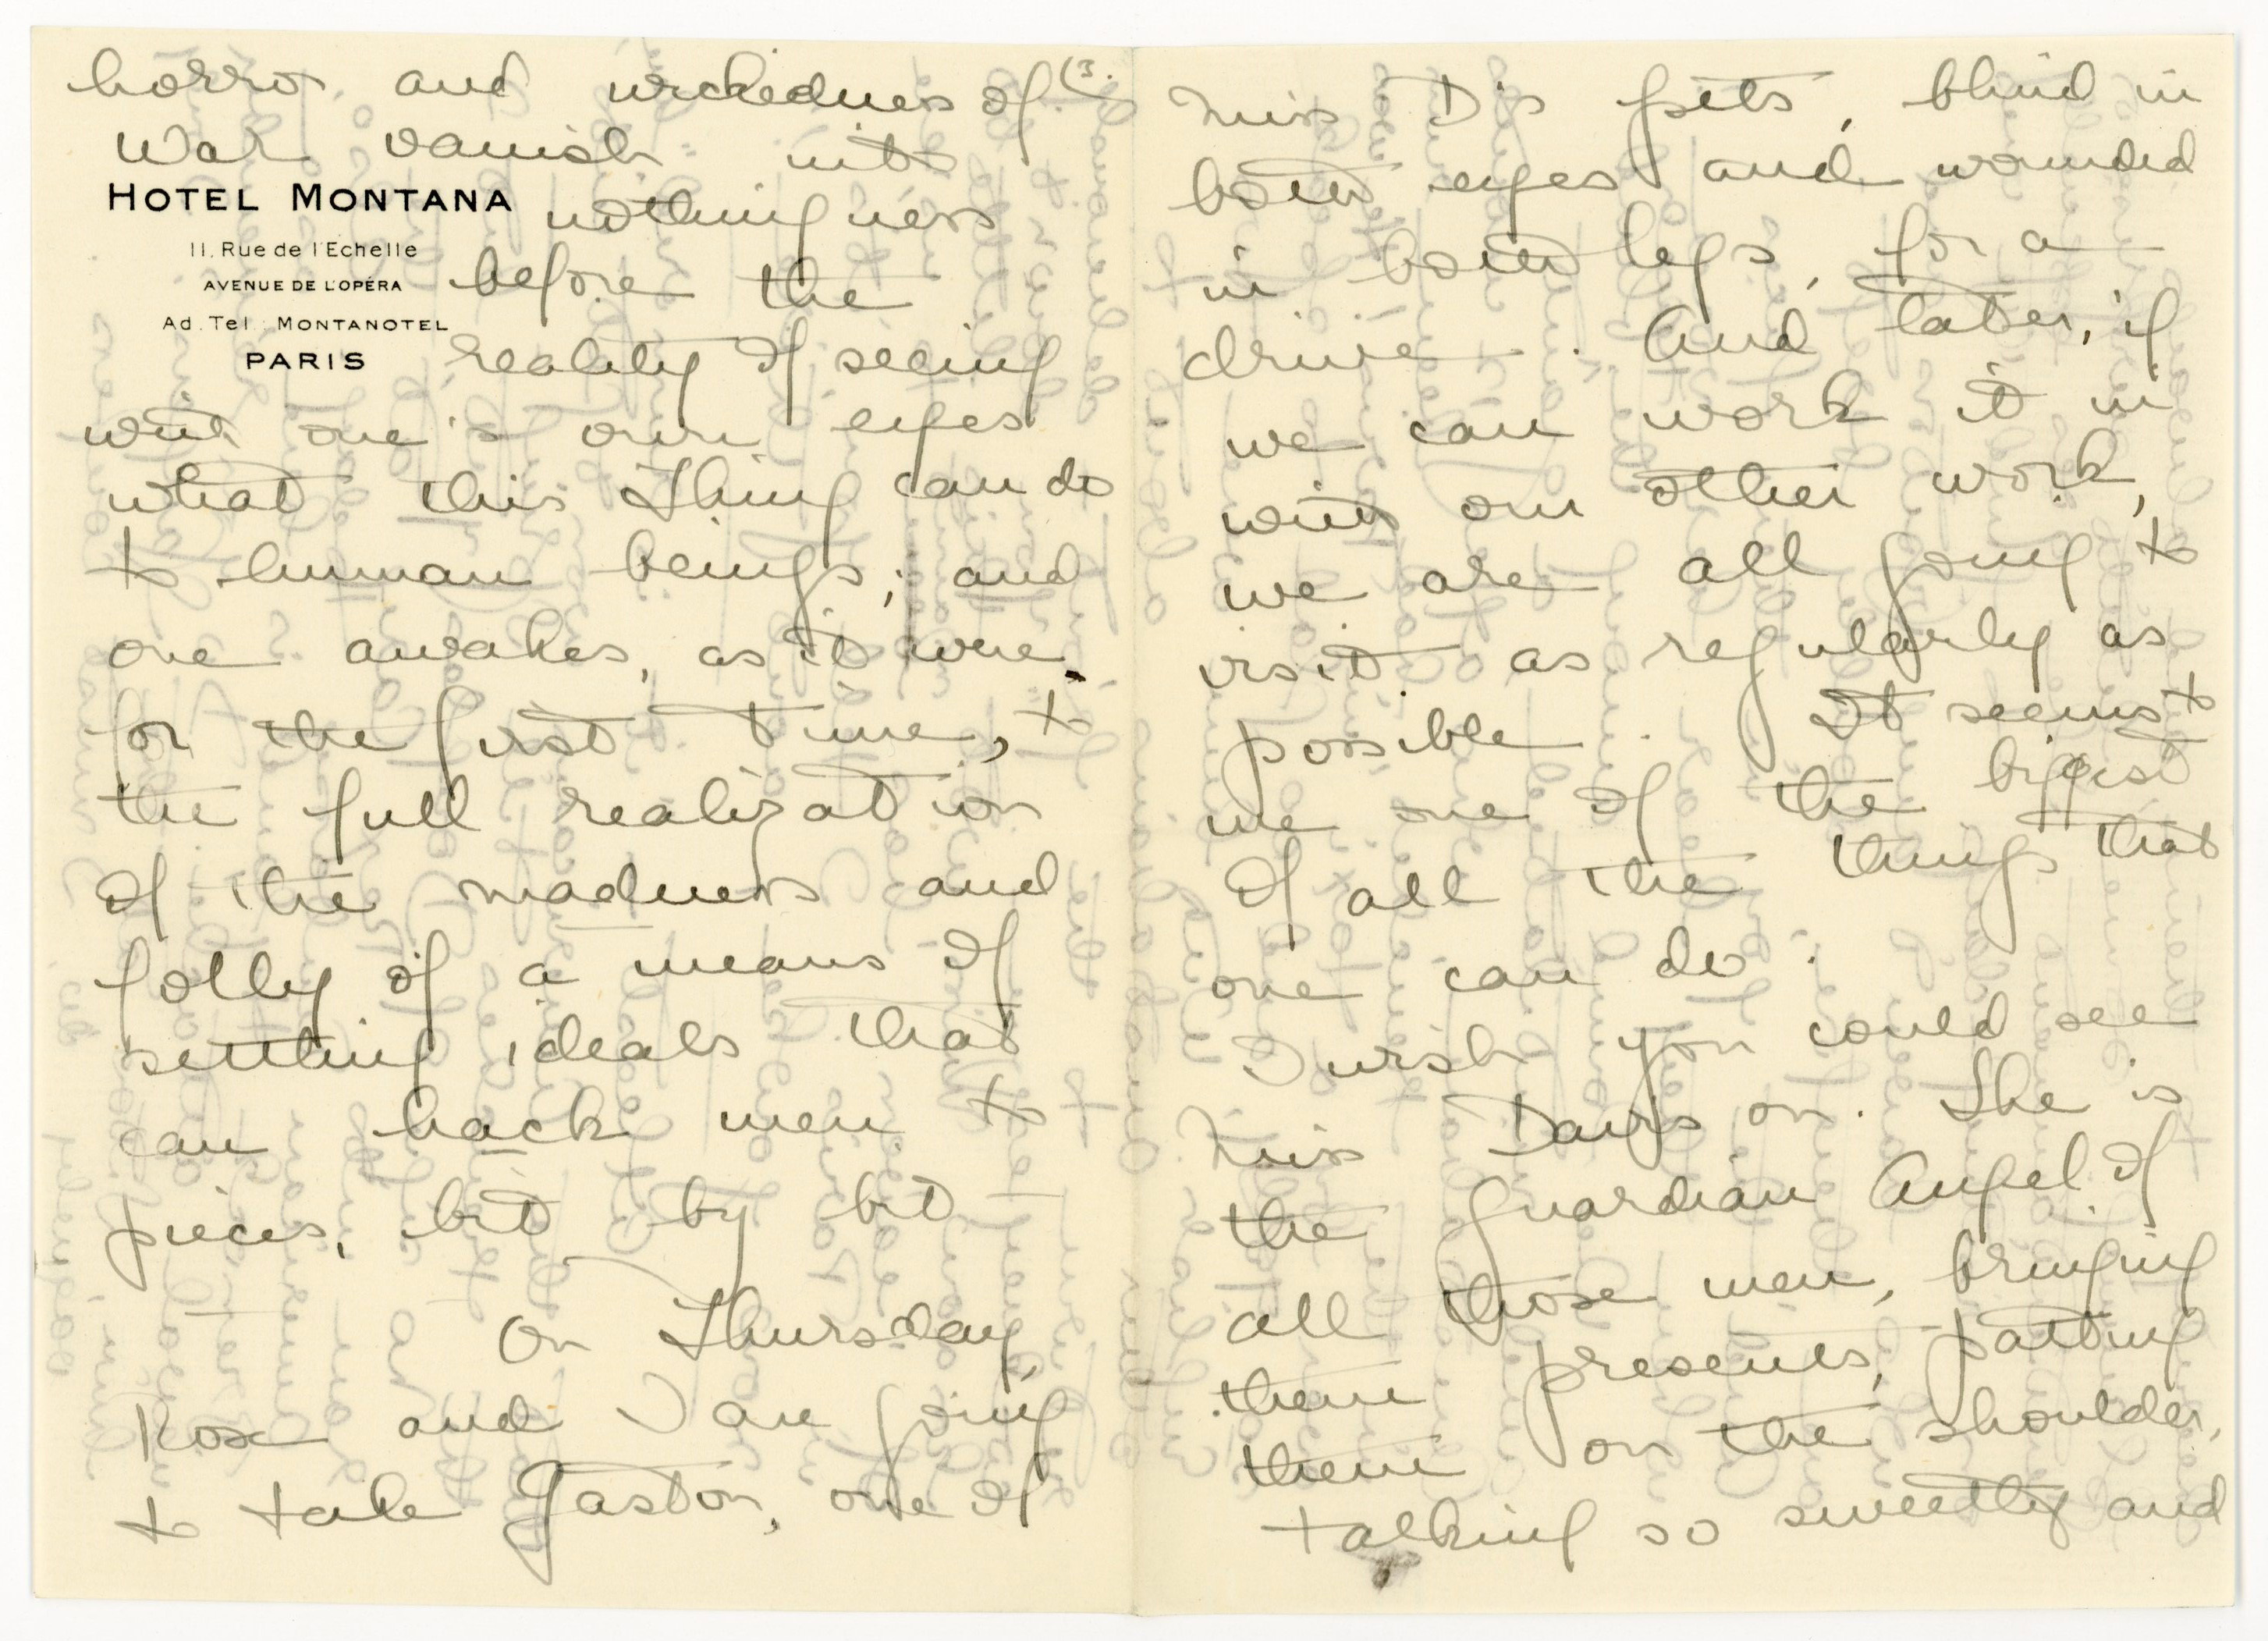 (3.
horror and wickedness of
War vanish into
HOTEL MONTANA
11. Rue de l'Echelle
AVENUE DE L'OPÉRA
Ad. Tel. MONTANOTEL
PARIS
nothingness
before the
reality of seeing
with one's own eyes
what this Thing can do
to human beings; and
one awakes, as it were,
for the first time, to
the full realization
of the madness and
folly of a means of
settling ideals that
can hack men to
pieces, bit by bit —
On Thursday,
Rose and I are going
to take Gaston, one of
Miss D's pets, blind in
both eyes and wounded
in both legs, for a
drive. And later, if
we can work it in
with our other work,
we are all going to
visit as regularly as
possible. It seems to
me one of the biggest
of all the things that
one can do.
I wish you could see
Miss Davis on. She is
the guardian Angel of
all those men, bringing
them presents, patting
them on the shoulder,
talking so sweetly and